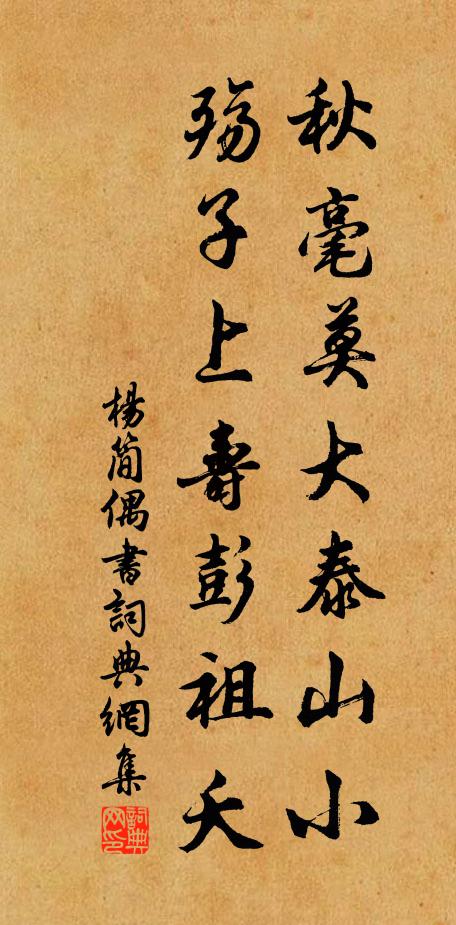 秋毫莫大泰山小
殤子上壽彭祖夭
楊簡偶書詞典網集
詞典網印